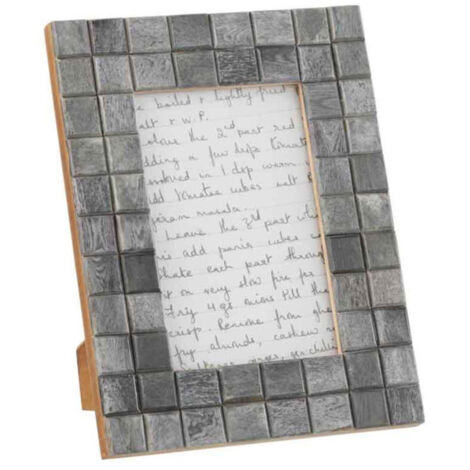 boiled & lightly fried
salt & W.P.
colour the 2nd part red
adding a few drops tomato
in 1 dsp warm
Add Tomatoe cubes salt
garam masala.
Leave the 3rd part whi
add panir cubes
Shake each part through
it on very slow fire for
Fry 4 gs onions till th
crisp. Remove from ghe
fry almonds, cashew n